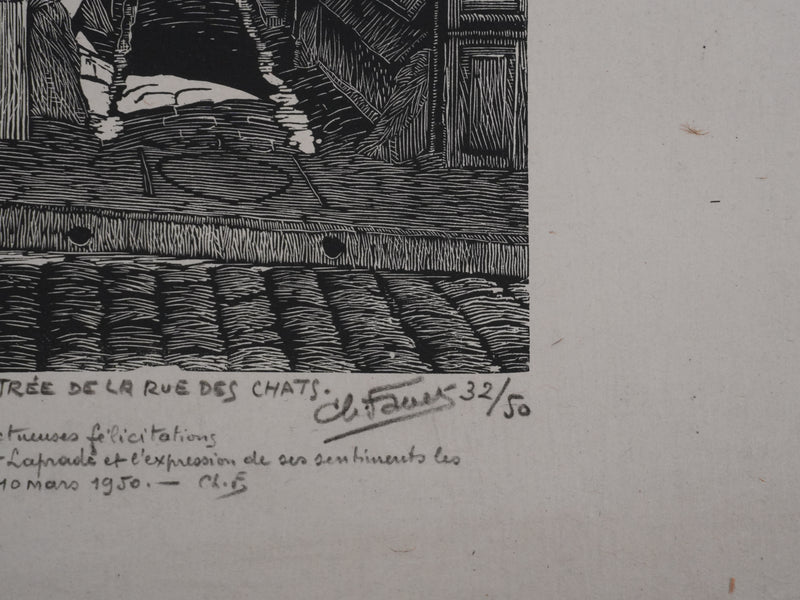 TRÉE DE LA RUE DES CHATS.
Ch Favet 32/50
ctueuses félicitations
Laprade et l'expression de ses sentiments les
10 mars 1950. — Ch. F.